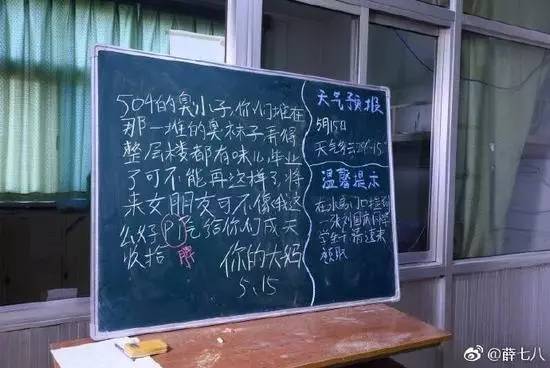 504的臭小子,你们堆在
那一堆的臭袜子弄得
整层楼都有味儿,毕业
了可不能再这样了,将
来女朋友可不像俺这
么好PI气给你们成天
收拾
脾
你的大妈
5.15
天气预报
5月15日
天气
温馨提示
在水房门口捡到
张刘国
学生 请速来
领取
@薛七八